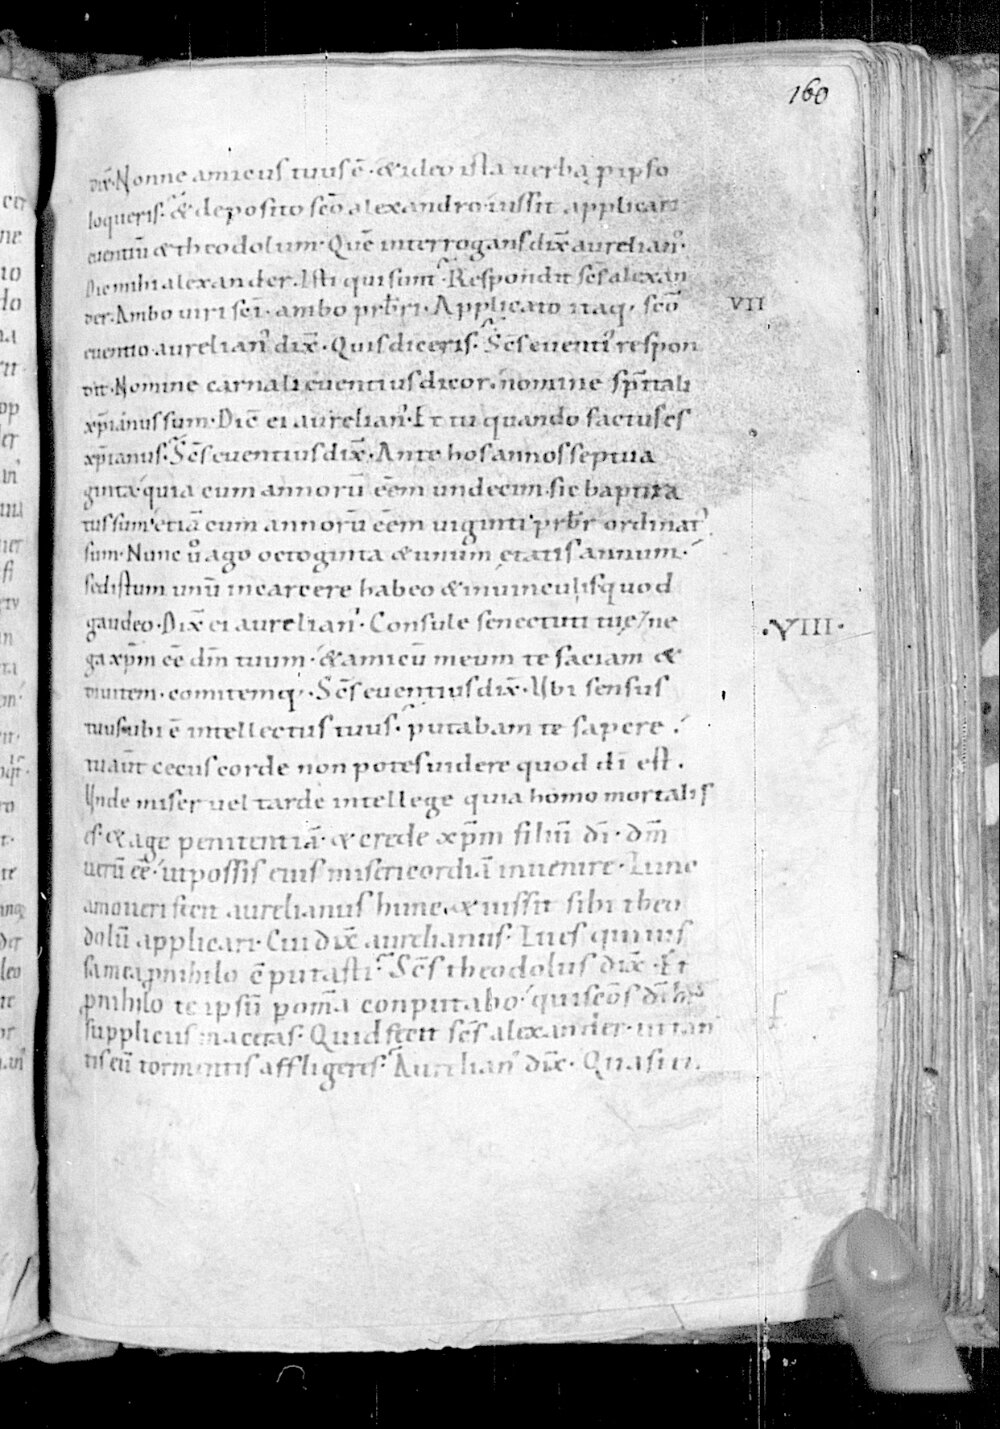 160
dix̄. Nonne amicus tuus ē. & ideo ista uerba p ipso
loqueris. & deposito sc̄o alexandro iussit applicari
euentiū & theodolum. Quē interrogans dix̄ aurelian᾽.
Dic mihi alexander. Isti qui sunt. Respondit sc̄s alexan
der. Ambo uiri sc̄i. ambo prb̄ri. Applicato itaq; sc̄o VII
euentio aurelian᾽ dix̄. Quis diceris. Sc̄s euenti᾽ respon
dit. Nomine carnali euentius dicor. nomine sp̄itali
xp̄ianus sum. Dic̄ ei aurelian᾽. Et tu quando factus es
xp̄ianus. Sc̄s euentius dix̄. Ante hos annos septua
ginta. quia cum annorū ēēm undecim. sic baptiza
tus sum. etiā cum annorū ēēm uiginti. prb̄r ordinat᾽
sum. Nunc ů ago octoginta & unum ętatis annum.
sed istum unū in carcere habeo & in uinculis quod
gaudeo. Dix̄ ei aurelian᾽. Consule senectuti tuę / ne ·VIII·
ga xp̄m ēē dm̄ tuum. & amicū meum te faciam &
diuitem. comitemq;. Sc̄s euentius dix̄. Ubi sensus
tuus. ubi ē intellectus tuus. putabam te sapere.
tu aūt cecus corde non potes uidere quod dī est.
Unde miser uel tarde intellege quia homo mortalis
es. & age penitentiā. & crede xp̄m filiū dī. dm̄
uerū ēē. ut possis eius misericordiā inuenire. Tunc
amoueri fecit aurelianus hunc. & iussit sibi theo
dolū applicari. Cui dix̄ aurelianus. Tu es qui ius
sa mea p nihilo ē putasti. Sc̄s theodolus dix̄. Et
p nihilo te ipsū pom̄a conputabo. qui sc̄os dī
suppliciis maceras. Quid fecit sc̄s alexander. ut tan
tis eū tormentis affligeres. Aurelian᾽ dix̄. Quasi